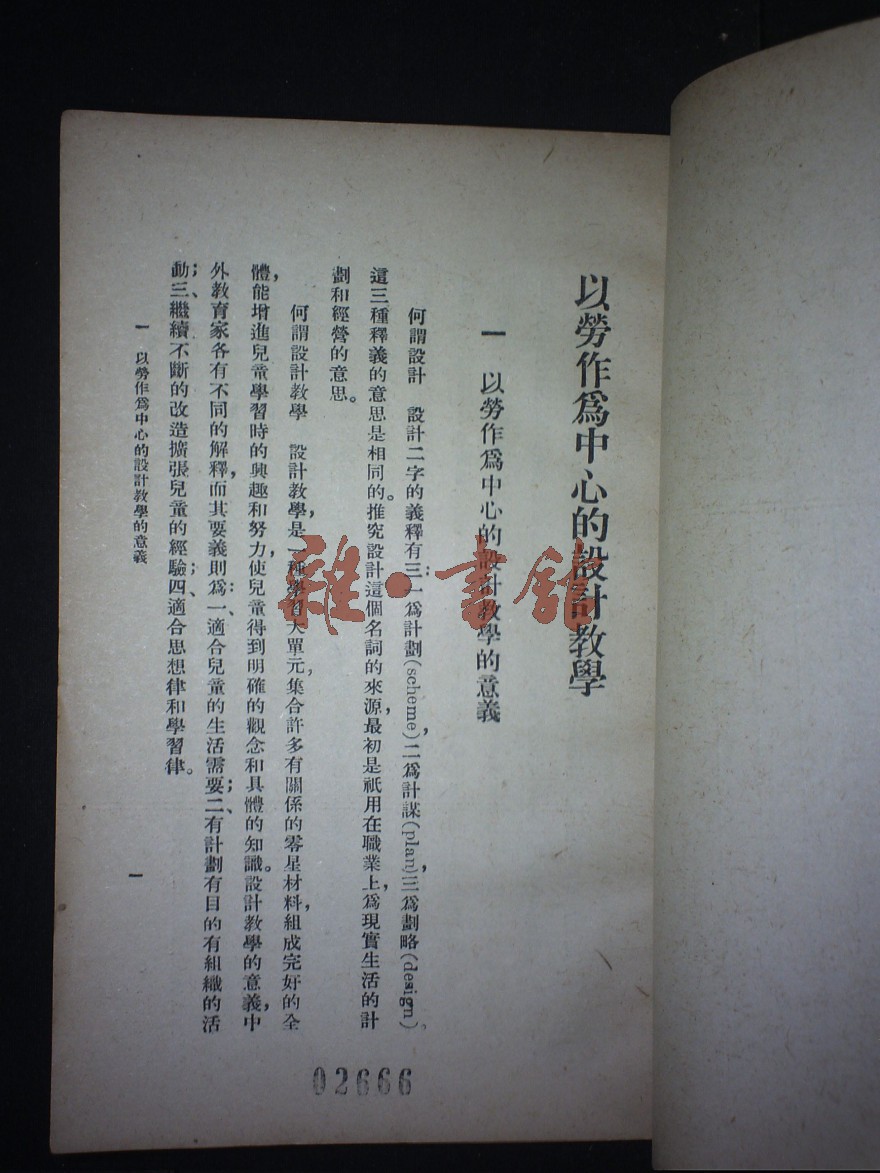 以勞作爲中心的設計教學
一　以勞作爲中心的設計教學的意義
何謂設計　設計二字的義釋有三：一爲計劃(scheme)，二爲計謀(plan)，三爲劃略(design)。
這三種釋義的意思是相同的。推究設計這個名詞的來源，最初是祇用在職業上，爲現實生活的計
劃和經營的意思。
何謂設計教學　設計教學，是一種學習大單元，集合許多有關係的零星材料，組成完好的全
體，能增進兒童學習時的興趣和努力，使兒童得到明確的觀念和具體的知識。設計教學的意義，中
外教育家各有不同的解釋，而其要義則爲：一、適合兒童的生活需要；二、有計劃有目的有組織的活
動；三、繼續不斷的改造擴張兒童的經驗；四、適合思想律和學習律。
一　以勞作爲中心的設計教學的意義
一
02666
雜·書館